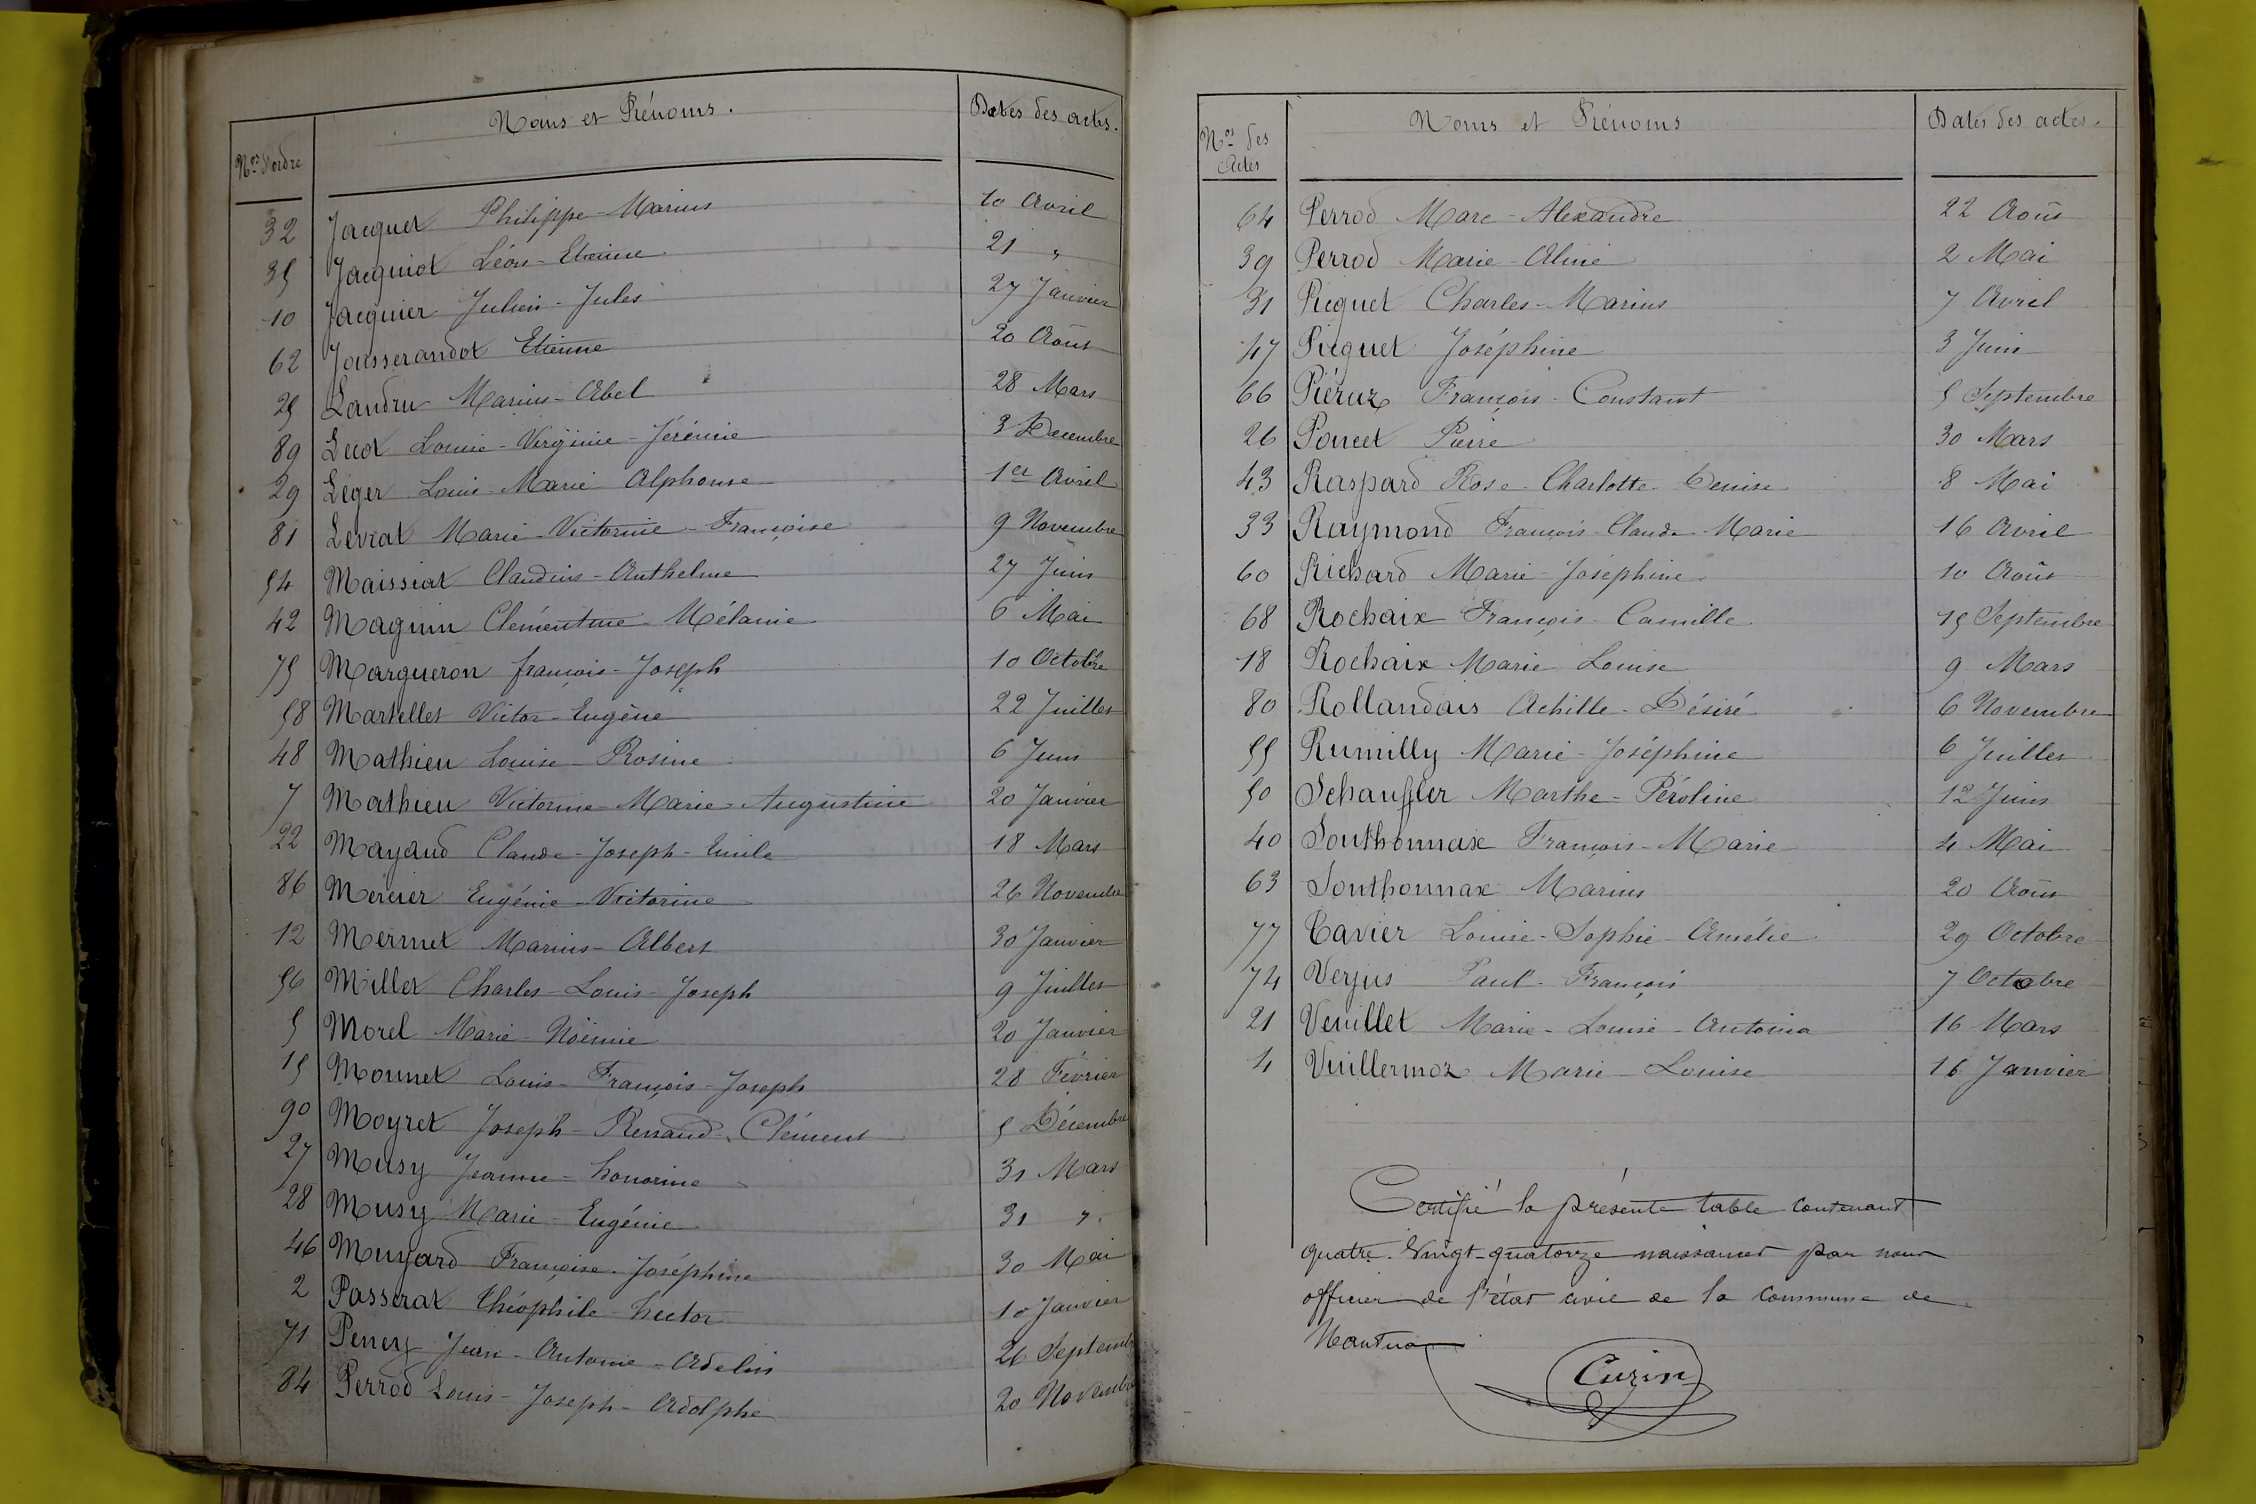 Nos d'ordre Noms et Prénoms. Dates des actes.
32 Jacquet Philippe-Marius 10 Avril
35 Jacquiot Léon-Etienne 21 "
10 Jacquier Julien-Jules 27 Janvier
62 Jousserandot Etienne 20 Août
25 Landru Marius-Abel 28 Mars
89 Luot Louise-Virginie-Jérémie 3 Decembre
29 Léger Louis-Marie Alphonse 1er Avril
81 Levrat Marie-Victorine-Françoise 9 Novembre
54 Maissiat Claudius-Anthelme 27 Juin
42 Magnin Clémentine Mélanie 6 Mai
75 Margueron françois-Joseph 10 Octobre
58 Martellet Victor-Eugène 22 Juillet
48 Mathieu Louise-Rosine 6 Juin
7 Mathieu Victorine-Marie-Augustine 20 Janvier
22 Mayaud Claude-Joseph-Emile 18 Mars
86 Mercier Eugénie-Victorine 26 Novembre
12 Mermet Marius-Albert 30 Janvier
56 Millet Charles-Louis-Joseph 9 Juillet
5 Morel Marie-Noëmie 20 Janvier
15 Monnet Louis-François-Joseph 28 Février
90 Moyret Joseph-Renaud-Clément 5 Décembre
27 Musy Jeanne-honorine 31 Mars
28 Musy Marie-Eugénie 31 "
46 Muyard Françoise-Joséphine 30 Mai
2 Passerat Théophile-hector 10 Janvier
71 Penery Jean-Antoine-Adelin 26 Septembre
84 Perrod Louis-Joseph-Adolphe 20 Novembre
Nos des Actes Noms et Prénoms Dates des actes.
64 Perrod Marc-Alexandre 22 Août
39 Perrod Marie-Aline 2 Mai
31 Picquet Charles-Marius 7 Avril
47 Picquet Joséphine 3 Juin
66 Piéruz François-Constant 5 Septembre
26 Poncet Pierre 30 Mars
43 Raspard Rose-Charlotte-Denise 8 Mai
33 Raymond François-Claude-Marie 16 Avril
60 Richard Marie-Joséphine 10 Août
68 Rochaix François-Camille 15 Septembre
18 Rochaix Marie Louise 9 Mars
80 Rollandais Achille-Désiré 6 Novembre
55 Rumilly Marie-Joséphine 6 Juillet
50 Schauffler Marthe-Péroline 12 Juin
40 Southonnax François-Marie 4 Mai
63 Southonnax Marius 20 Août
77 Tavier Louise-Sophie-Amélie 29 Octobre
74 Verjus Paul-François 7 Octobre
21 Veuillet Marie-Louise-Antonia 16 Mars
4 Vuillermoz Marie-Louise 16 Janvier
Certifié la présente table contenant
quatre-vingt-quatorze naissances par nous
officier de l'état civil de la commune de
Nantua
Curin